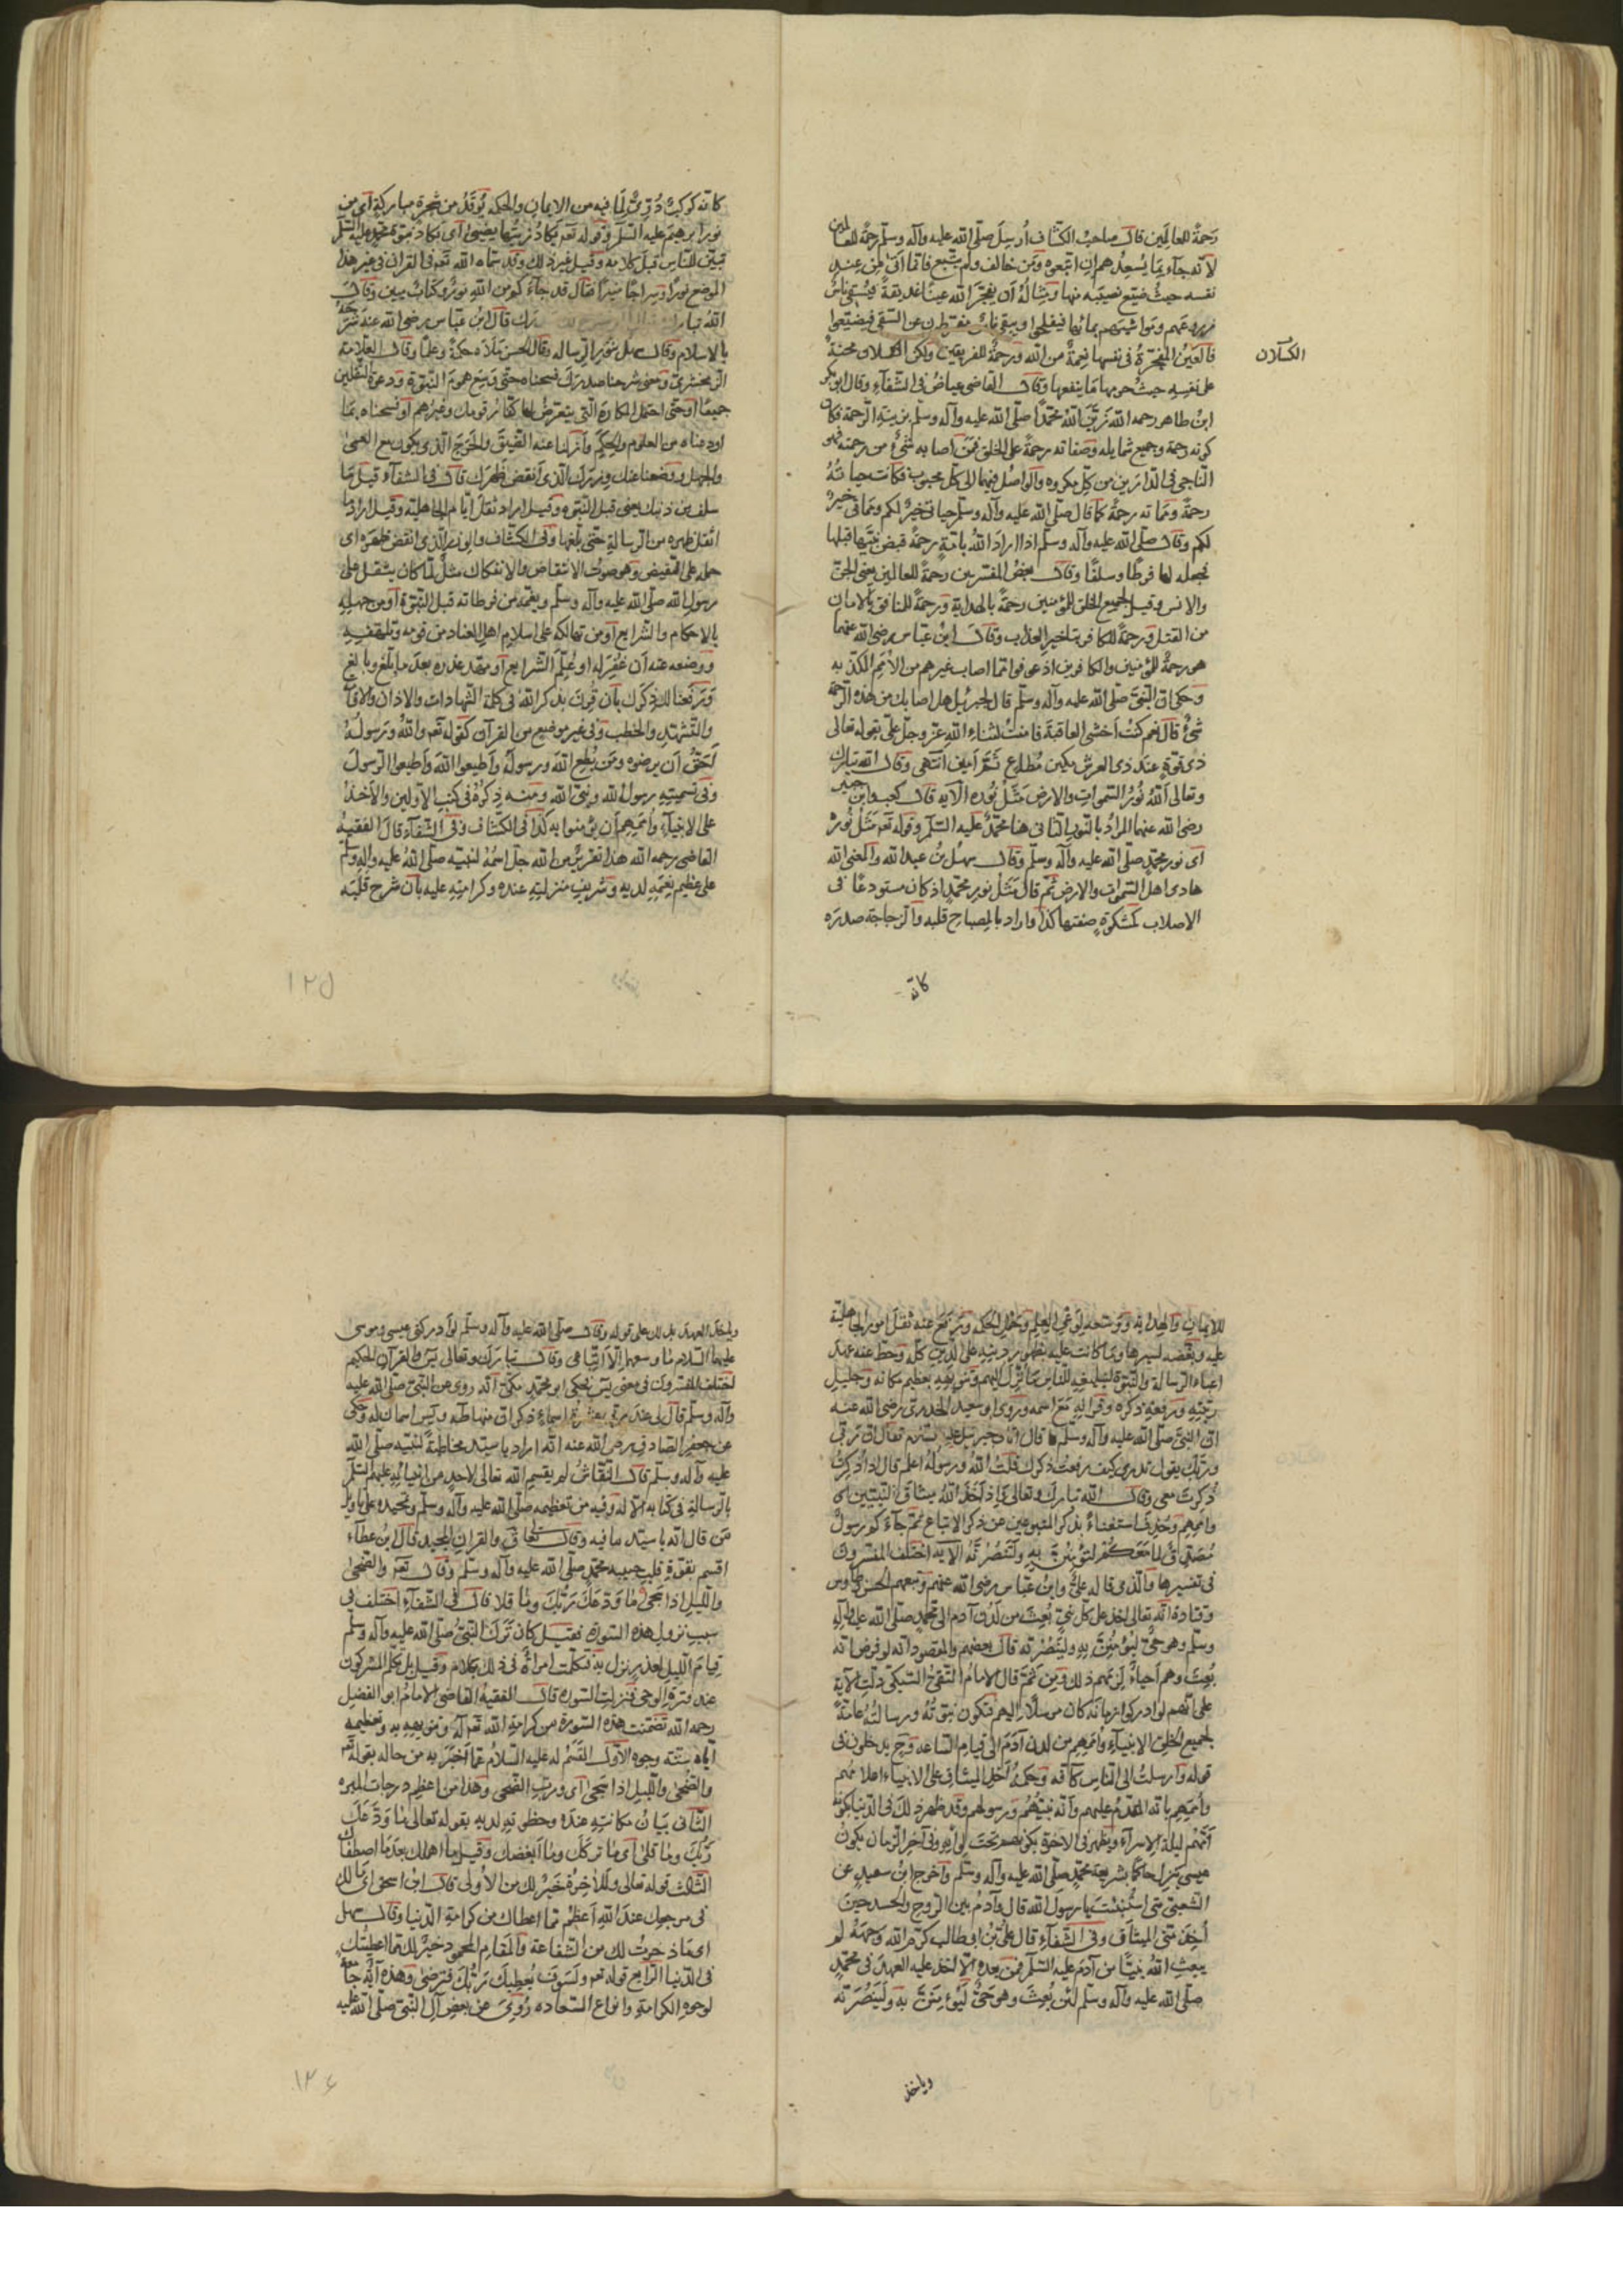 رحمةً للعالمين قال صاحب الكشاف أُرسِلَ صلّى الله عليه وآله وسلّم رحمةً للعالمين
لانه جآء بما يُسعِدُهم انِ اتبعوه ومَن خالف ولم يتبع فانما اُتى من عند
نفسه حيثُ ضيّع نصيبه منها ومثالُهُ اَن يفجّرَ الله عينًا غديقةً فيُسقى ناسٌ
زروعهم ومواشيهم بمائها فيفلحوا ويبقى ناسٌ مفرّطون عن السقى فيضيّعوا
فالعينُ المفجّرةُ فى نفسها نعمةٌ من الله ورحمةٌ للفريقين ولكن الكسلان محنةٌ
الكسلان
على نفسه حيثُ حرمها ما ينفعها وقال القاضى عياضُ فى الشفآء وقال ابو بكر
ابن طاهر رحمه الله زيّنَ اللهُ محمّدًا صلّى الله عليه وآله وسلّم بزينةِ الرحمة فكان
كونه رحمة وجميع شمايله وصفاته رحمةً على الخلق فمَن اصابه شىءٌ من رحمته فهو
الناجى فى الدارين من كلّ مكروه والواصل فيهما الى كلّ محبوب فكانت حياتُهُ
رحمةً ومماته رحمةً كما قال صلّى الله عليه وآله وسلّم حياتى خيرٌ لكم ومماتى خيرٌ
لكم وقال صلّى الله عليه وآله وسلّم اذا اراد اللهُ بامّةٍ رحمةً قبض نبيّها قبلها
فجعله لها فرطًا وسلفًا وقال بعضُ المفسّرين رحمةً للعالمين يعنى الجنّ
والانس وقيل لجميع الخلق للمؤمنين رحمةً بالهداية ورحمةً للمنافق بالامان
من القتل ورحمةً للكافر بتاخير العذاب وقال ابنُ عبّاس رضى الله عنهما
هو رحمةٌ للمؤمنين والكافرين اذ عوفوا مما اصاب غيرهم من الاُمَم المكذّبه
وحكى انّ النبىَّ صلّى الله عليه وآله وسلّم قال لجبريل هل اصابك من هذه الرحمة
شىءٌ قال نعم كنتُ اَخشى العاقبة فامنتُ لثناء الله عزّ وجلّ علىّ بقوله تعالى
ذى قوّةٍ عند ذى العرش مكين مُطاعٍ ثَمَّ اَمين انتهى وقال الله تبارك
وتعالى اللهُ نورُ السموات والارض مَثَلُ نوره الآيه قال كعبٌ وابن جبير
رضى الله عنهما المرادُ بالنور الثانى هنا محمّدٌ عليه السّلم وقوله تعَ مَثَل نوره
اى نور محمّدٍ صلّى الله عليه وآله وسلّم وقال سهلُ بنُ عبد الله والمعنى الله
هادى اهل السموات والارض ثمّ قال مَثَلُ نور محمّدٍ اذ كان مستودعًا فى
الاصلاب كمشكوةٍ صفتها كذا واراد بالمصباح قلبه والزجاجة صدرَه
كانه
كانه كوكبٌ دُرّىٌّ لِمَا فيه من الايمان والحكمه يُوقَدُ من شجرة مباركةٍ اى من
نور ابرهيم عليه السّلم وقوله تعَ يكادُ زيتُها يُضِىءُ اى تكاد نبوّة محمّدٍ عليه السّلم
تبيّن للناس قبل كلامه وقيل غير ذلك وقد سمّاه الله تعَ فى القرآن فى غير هذا
الموضع نورًا وسراجًا منيرًا فقال قد جآءكم من اللهِ نورٌ وكتابٌ مبين وقال
اللهُ تبارك وتعالى الم نشرح لك صدرك قال ابنُ عبّاس رضى الله عنه شَرَحَهُ
بالاسلام وقال سهل بنور الرساله وقال الحسن مَلَأه حكمةً وعلمًا وقال العلامة
الزمخشرى ومعنى شرحنا صدرك فسحناه حتّى وَسِعَ هموم النبوّة ودعوة الثقلين
جميعًا اَو حتّى احتمل المكاره التى يتعرّضُ لها كفّارُ قومك وغيرهم اَو فسحناه بمَا
اودعناه من العلوم والحِكَم وأَزلنا عنه الضيقَ والحَرَجَ الذى يكون مع العمى
والجهل ووضعنا عنك وِزرَك الّذى أنقض ظهرَك قال فى الشفآء قيل مَا
سلف من ذنبك يعنى قبل النبوّه وقيل اراد ثقل ايّام الجاهليّة وقيل اراد ما
اثقل ظهره من الرسالةِ حتّى بلّغها وفى الكشّاف والوِزرُ الّذى انقض ظهره اى
حمله على النقيض وهو صوتُ الانتقاض والانفكاك مثلٌ لما كان يثقل على
رسول الله صلّى الله عليه وآله وسلّم ويغمّه من فرطاته قبل النبوّة اَو من جهله
بالاحكام والشرايع اَو من تهالكه على اسلام اهل العناد من قومه وتلهّفه
ووضعه عنه اَن غُفِرَ له او عُلِّمَ الشرايع اَو مهّد عذره بعدَ ما بلّغ وبالغ
ورَفعنا لك ذِكرَك بأن قُرِنَ بذكر اللهِ فى كلمة الشهادات والاذان والاقامة
والتشهّد والخطب وفى غير موضع من القرآن كقوله تعَ والله ورَسولُهُ
اَحَقُّ اَن يرضوه ومَن يُطع الله ورسولَه وأَطيعوا الله وأَطيعوا الرسولَ
وفى تسميته رسولُ الله ونبىُّ الله ومنه ذِكرُهُ فى كتب الاوّلين والأَخذُ
على الانبيآء واُمَمِهم أن يؤمنوا به كذا فى الكشّاف وفى الشّفآء قال الفقيهُ
القاضى رحمه الله هذا تقريرٌ من الله جلّ اسمُهُ لنبيّه صلّى الله عليه وآله وسلّم
على عظيم نِعَمِهِ لديه وشريفِ منزلته عنده وكرامته عليه بأن شرح قلبَه
١٢٥
للايمان والهدايه ووسّعه لوَعْىِ العِلم وحَمْلِ الحكمه ورَفَعَ عنه ثقلَ امور الجاهليّة
عليه وبغّضه لسيرها وما كانت عليه بظهور دينه على الدين كلّه وحَطّ عنه عهدة
اعباء الرسالة والنبوّة لتبليغه للناس ما نُزِّلَ اليهم وتنويهِهِ بعظيم مكانه وجليلِ
رتبته ورفعةِ ذكره وقِرانِهِ مَعَ اسمه اسمه وروى ابو سعيد الخدرى رضى الله عنه
انّ النبىّ صلّى الله عليه وآله وسلّم قال اتانى جبريل عليه السّلم فقال انّ ربّى
وربّك يقول تدرى كيف رفعتُ ذكرك قلتُ اللهُ ورسولُه اعلم قال اذا ذُكِرتُ
ذُكِرتَ معى وقال الله تبارك وتعالى وإذ اَخَذَ اللهُ ميثاقَ النبيّين اى
واُمَمِهِم وحُذِفَ استغناءً بذكر المتبوعين عن ذكر الاتباع ثمّ جآءكم رسولٌ
مُصدّقٌ لما معكم لتؤمِنُنَّ به ولتَنصُرنّه الآيه اختلف المفسّرون
فى تفسيرها والّذى قاله علىٌّ وابنُ عبّاس رضى الله عنهم وتبعهم الحسن وطاوس
وقتادة انّه تعالى اخذ على كلّ نبىٍّ بُعِثَ من لَدُن آدم الى محمّدٍ صلّى الله عليه وآله
وسلّم وهو حىٌّ ليؤمِنُنَّ به ولينصُرنّه قال بعضهم والمقصود انّه لو فرضنا انّه
بُعِثَ وهم أحياءٌ لزمهم ذلك ومِن ثَمَّ قال الامامُ التقىُّ السّبكى دلّت الآية
على انّهم لو ادركوا زمانَه كان مرسلًا اليهم فتكون نبوّتُهُ ورسالتُهُ عامّةً
لجميع الخلق الانبيآء واُمَمِهم من لدن آدمَ الى قيام الساعه وح يدخلون فى
قوله واُرسلتُ الى الناس كآفّه وحكمةُ أخذِ الميثاق على الانبياء اعلامُهم
واُمَمِهم بانّه المقدّمُ عليهم وأنّه نبيُّهُم ورسولهم وقد ظهر ذلك فى الدنيا بكونه
أمَّهُم ليلة الاسرآء ويظهر فى الاخرة بكونهم تحت لوآئه وفى آخر الزمان بكون
عيسى ينزل حاكمًا بشريعة محمّدٍ صلّى الله عليه وآله وسلّم وأخرج ابنُ سعيد عن
الشعبى متى استُنبئتَ يا رسول الله قال وآدمُ بين الروح والجسد حين
أُخِذَ منّى الميثاق وفى الشّفآءِ قال علىُّ بنُ ابى طالب كرّم الله وَجهَهُ لم
يبعثِ اللهُ نبيًّا من آدم عليه السّلم فمن بعده الّا اخذ عليه العهدَ فى محمّدٍ
صلّى الله عليه وآله وسلّم لئن بُعِثَ وهو حىٌّ ليؤمِنَنَّ به ولَيَنصُرَنّه
وياخذ
وياخذ العهدَ بذلك على قومه وقال صلّى الله عليه وآله وسلّم لو أدركنى عيسى وموسى
عليهما السّلام ما وسعهما الّا اتّباعى وقال تبارك وتعالى يس والقرآن الحكيم
اختلف المفسّرون فى معنى يس فحكى ابو محمّدٍ مكّى انّه روى عن النبىّ صلّى الله عليه
وآله وسلّم قال لى عند ربى عشرةُ اسماءٍ ذكر انّ منها طه ويس اسمان له وحكى
عن جعفرٍ الصادق رضى الله عنه انّه اراد يا سيّد مخاطبةً لنبيّه صلّى الله
عليه وآله وسلّم قال النقّاشُ لم يقسم الله تعالى لاحدٍ من انبيائه عليهم السّلم
بالرسالة فى كتابه الّا له وفيه من تعظيمه صلّى الله عليه وآله وسلّم وتمجيده على تاويل
مَن قال انّه يا سيّد ما فيه وقال تعالى ق والقرآن المجيد قال ابنُ عطآء
اقسم بقوّةِ قلب حبيبه محمّدٍ صلّى الله عليه وآله وسلّم وقال تعَ والضحى
والليل اذا سَجى مَا وَدّعَكَ رَبُّكَ ومَا قلا قال فى الشّفآءِ اختلف فى
سبب نزول هذه السوره فقيل كان تَرَكَ النبىُّ صلّى الله عليه وآله وسلّم
قيامَ الليل لعذرٍ نزل به فتكلّمت امرأةٌ فى ذلك بكلام وقيل بل تكلّم المشركون
عند فترة الوحى فنزلت السوره قال الفقيهُ القاضى الامامُ ابو الفضل
رحمه الله تضمّنت هذه السورة من كرامة الله تعَ له وتنويهه به وتعظيمه
ايّاه ستّة وجوه الأوّل القَسَمُ له عليه السّلامُ عمّا اَخبَرَ به من حاله بقوله تعَ
والضحى والليل اذا سَجى اى وربّ الضحى وهذا من اعظم درجات المبرّه
الثّانى بَيَانُ مكانته عندَه وحظوته لديه بقوله تعالى مَا وَدَّعَكَ
رَبُّكَ ومَا قلى اى مَا تركك ومَا أبغضك وقيل مَا اهملك بعدَ مَا اصطفاك
الثالث قوله تعالى وللآخرةُ خيرٌ لك من الأُولى قال ابن اسحق اى مَالك
فى مرجعك عندَ اللهِ أعظمُ ممّا اعطاك من كرامة الدنيا وقال سهل
اى مَا ذخرتُ لك من الشّفاعة والمَقام المحمود خيرٌ لك ممّا اعطيتك
فى الدنيا الرّابع قوله تعَ ولَسَوفَ يُعطيكَ رَبُّكَ فترضى وهذه آيةٌ جامعةٌ
لوجوه الكرامة وانواع السّعاده رُوِىَ عن بعضِ آل النبىّ صلّى الله عليه
١٢٦